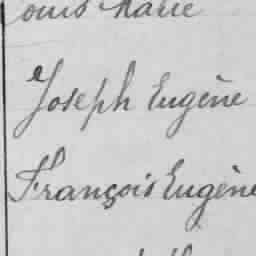 ouis Marie
Joseph Eugène
François Eugène